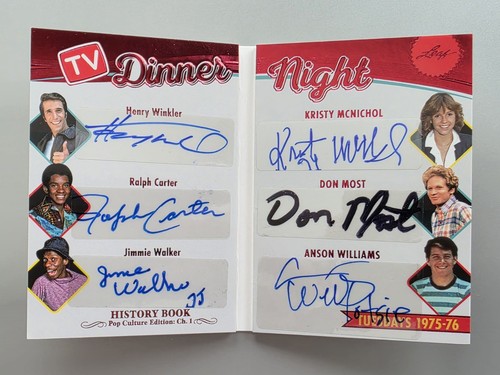 TV Dinner
Night
Leaf
Henry Winkler
Ralph Carter
Ralph Carter
Jimmie Walker
Jimmie
Walker
JJ
HISTORY BOOK
Pop Culture Edition: Ch. 1
KRISTY MCNICHOL
Kristy McNichol
DON MOST
Don Most
ANSON WILLIAMS
Potsie
TUESDAYS 1975-76